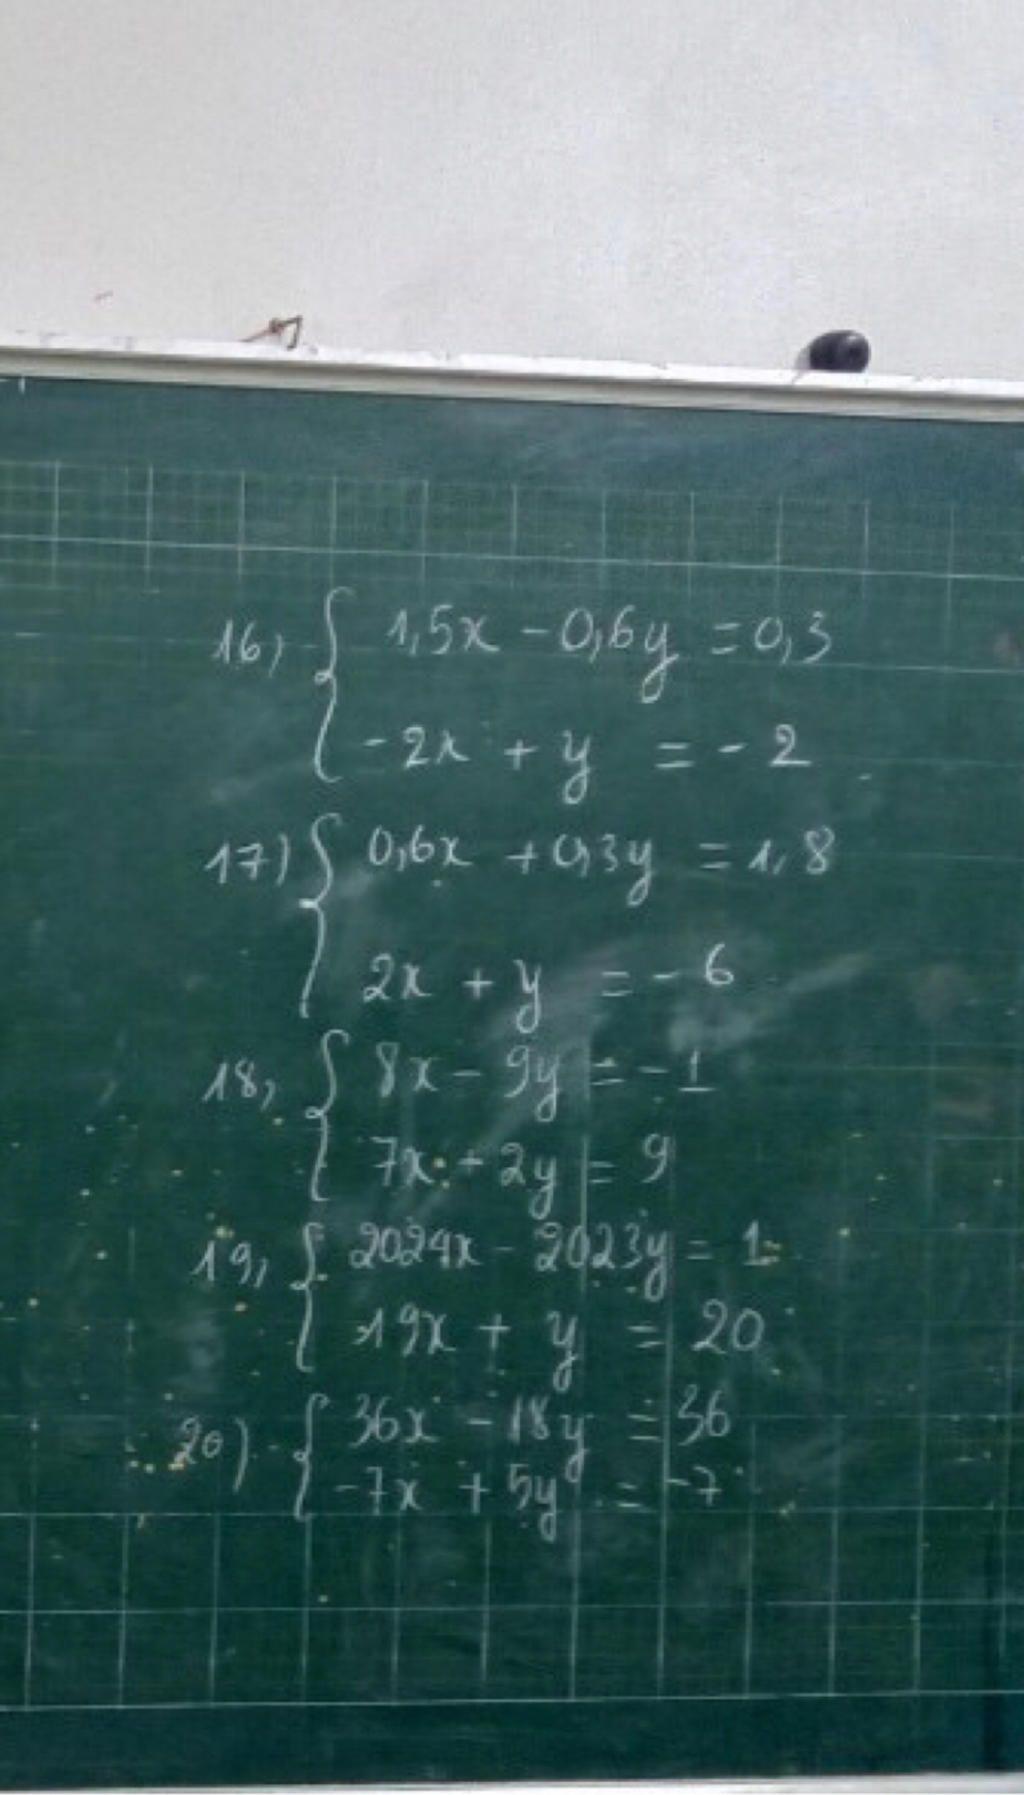 16, { 1,5x - 0,6y = 0,3
-2x + y = - 2
17) { 0,6x + 0,3y = 1,8
2x + y = - 6
18, { 8x - 9y = - 1
7x + 2y = 9
19, { 2024x - 2023y = 1
19x + y = 20
20) { 36x - 18y = 36
-7x + 5y = -7